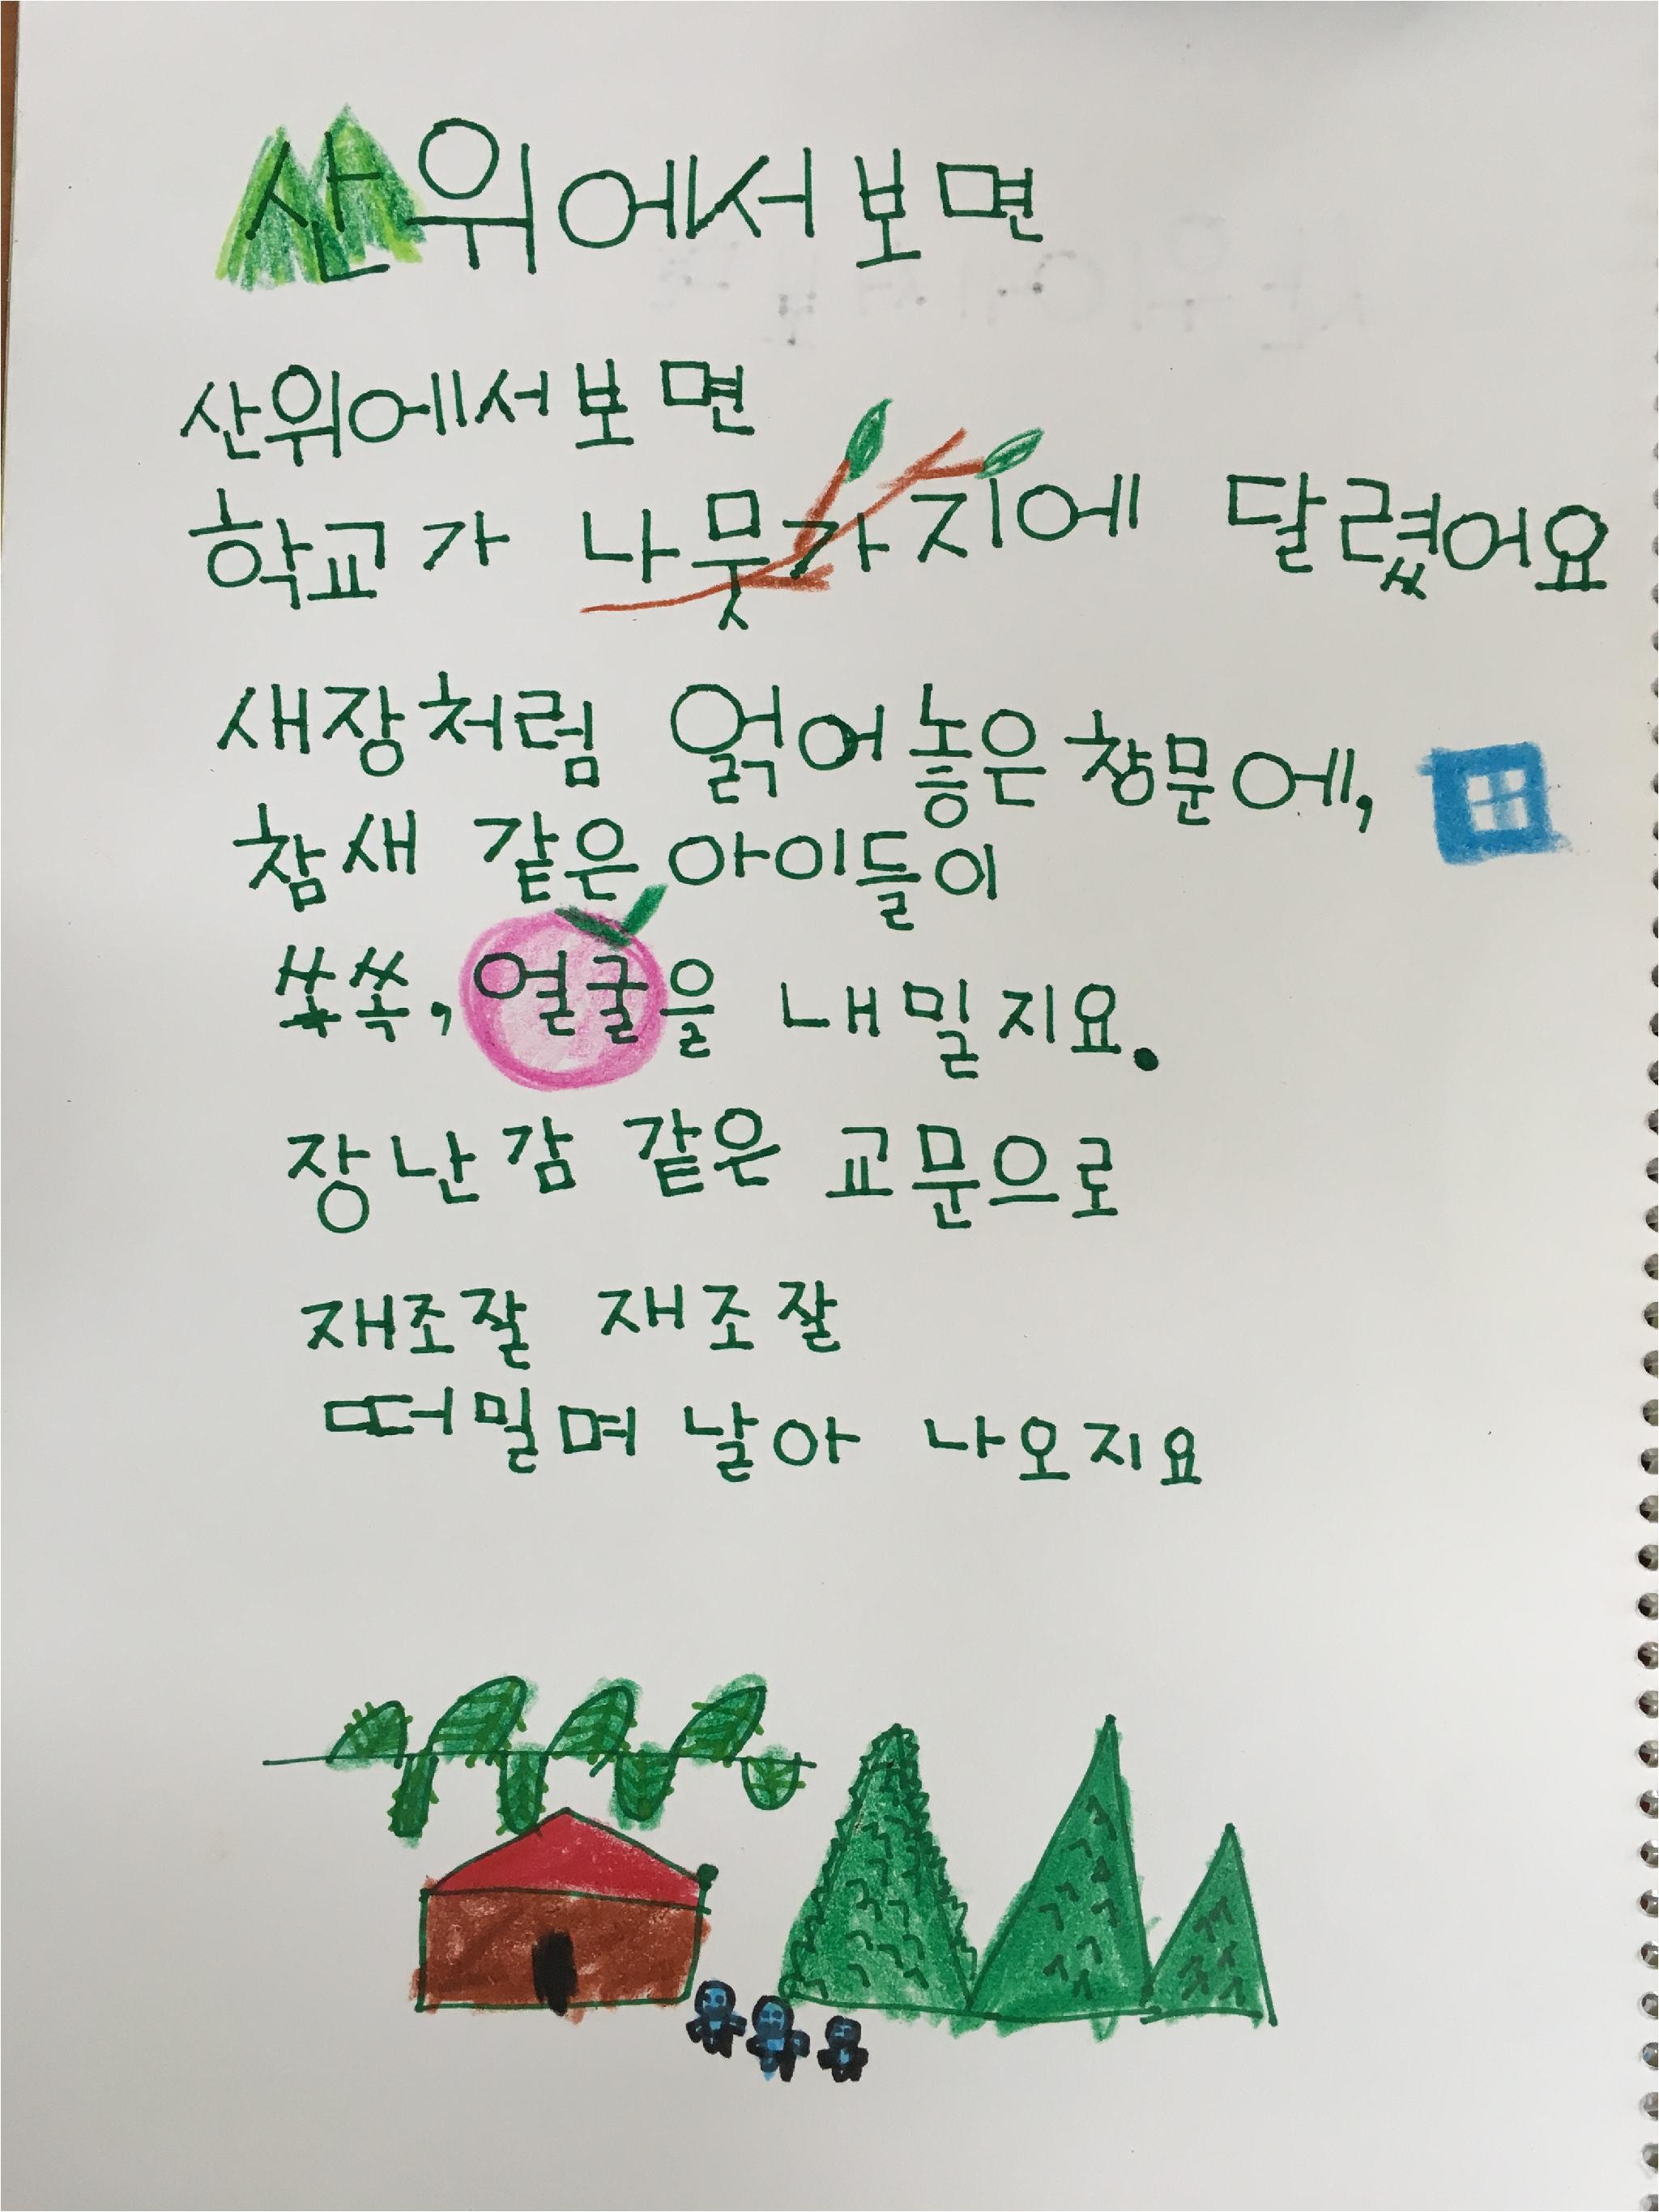 산위에서보면
산위에서보면
학교가 나뭇가지에 달렸어요
새장처럼 얽어놓은창문에,
참새 같은아이들이
쏙쏙, 얼굴을 내밀지요.
장난감 같은 교문으로
재조잘 재조잘
떠밀며 날아 나오지요